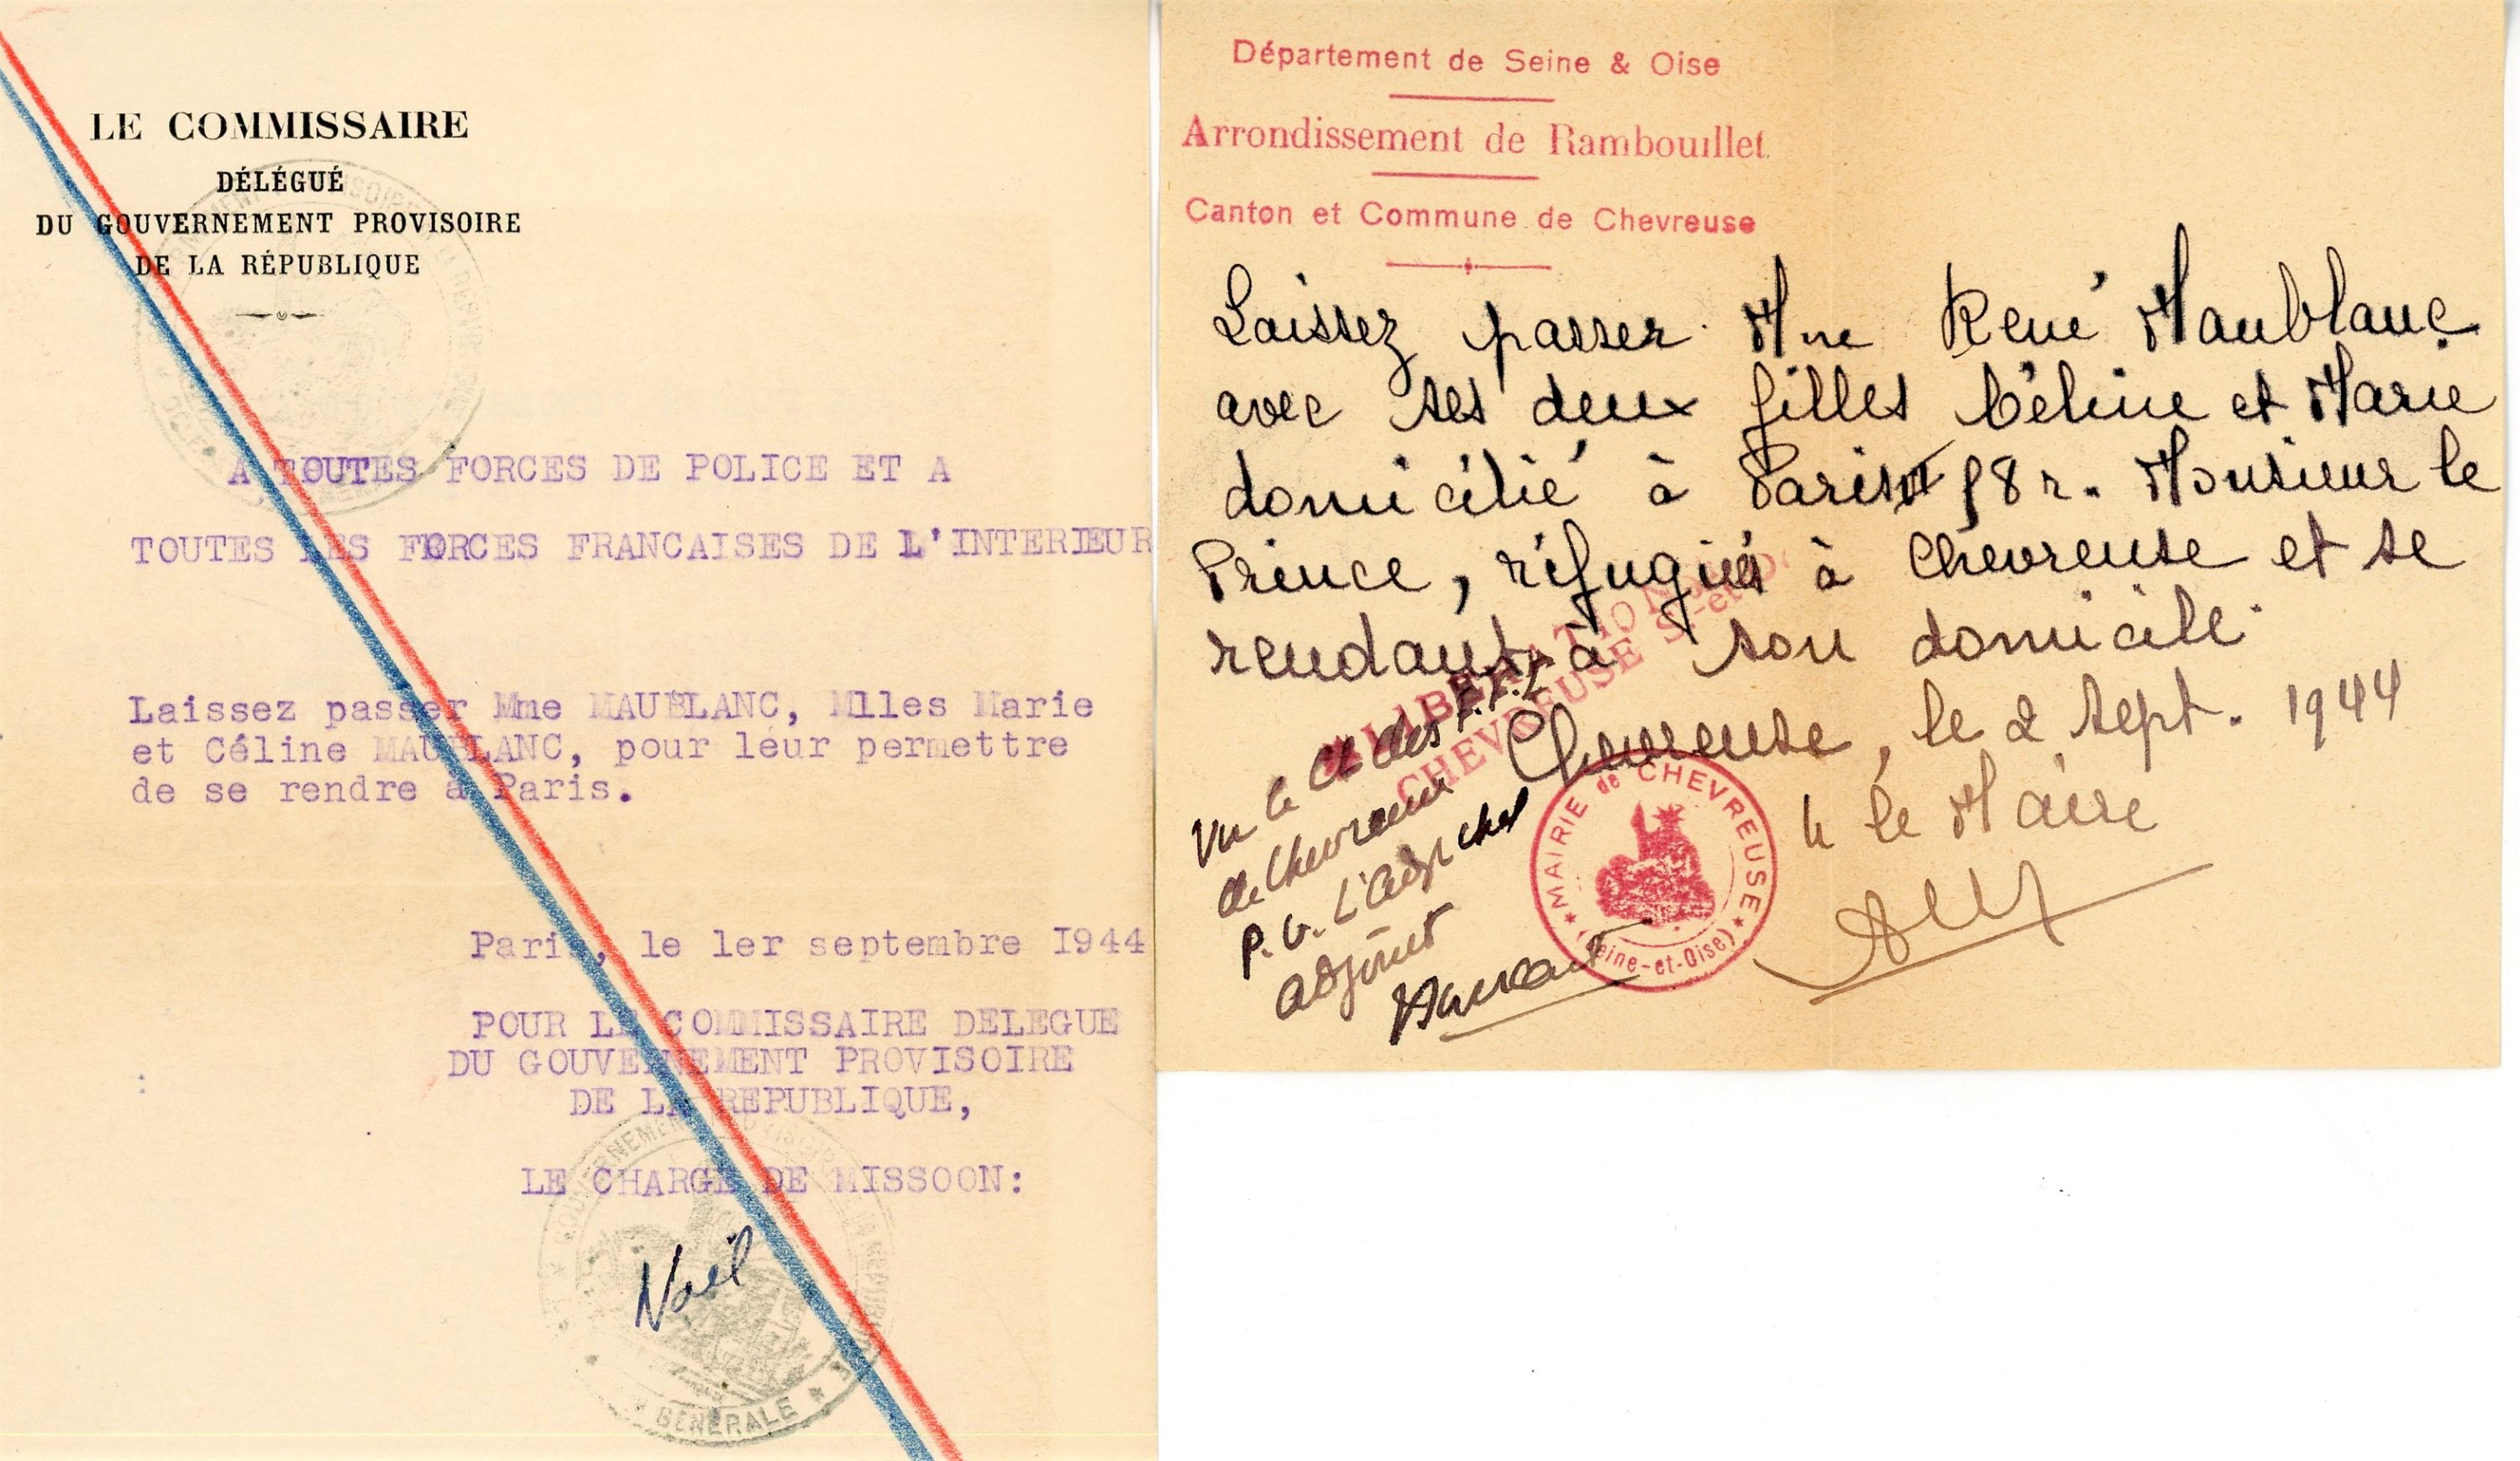 LE COMMISSAIRE
DÉLÉGUÉ
DU GOUVERNEMENT PROVISOIRE
DE LA RÉPUBLIQUE
A TOUTES FORCES DE POLICE ET A
TOUTES LES FORCES FRANCAISES DE L'INTERIEUR
Laissez passer Mme MAUBLANC, Mlles Marie
et Céline MAUBLANC, pour leur permettre
de se rendre à Paris.
Paris, le 1er septembre 1944
POUR LE COMMISSAIRE DELEGUE
DU GOUVERNEMENT PROVISOIRE
DE LA REPUBLIQUE,
LE CHARGE DE MISSOON:
Noël
GÉNÉRALE
Département de Seine & Oise
Arrondissement de Rambouillet
Canton et Commune de Chevreuse
Laissez passer Mme René Maublanc
avec ses deux filles Céline et Marie
domicilié à Paris 58 r. Monsieur le
Prince, réfugiés à Chevreuse et se
rendant à son domicile
LIBERATION
CHEVREUSE S.-et-O.
Chevreuse, le 2 sept. 1944
le Maire
Vu le Ct des F.F.I.
de Chevreuse
P.O. L'adjt chef
adjoint
MAIRIE de CHEVREUSE
(Seine-et-Oise)